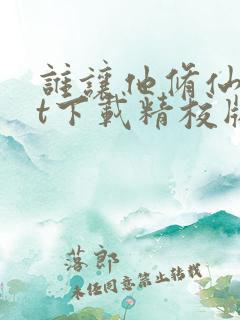 誰讓他脩仙
t下載精校版
落郎
未任同意禁止转载